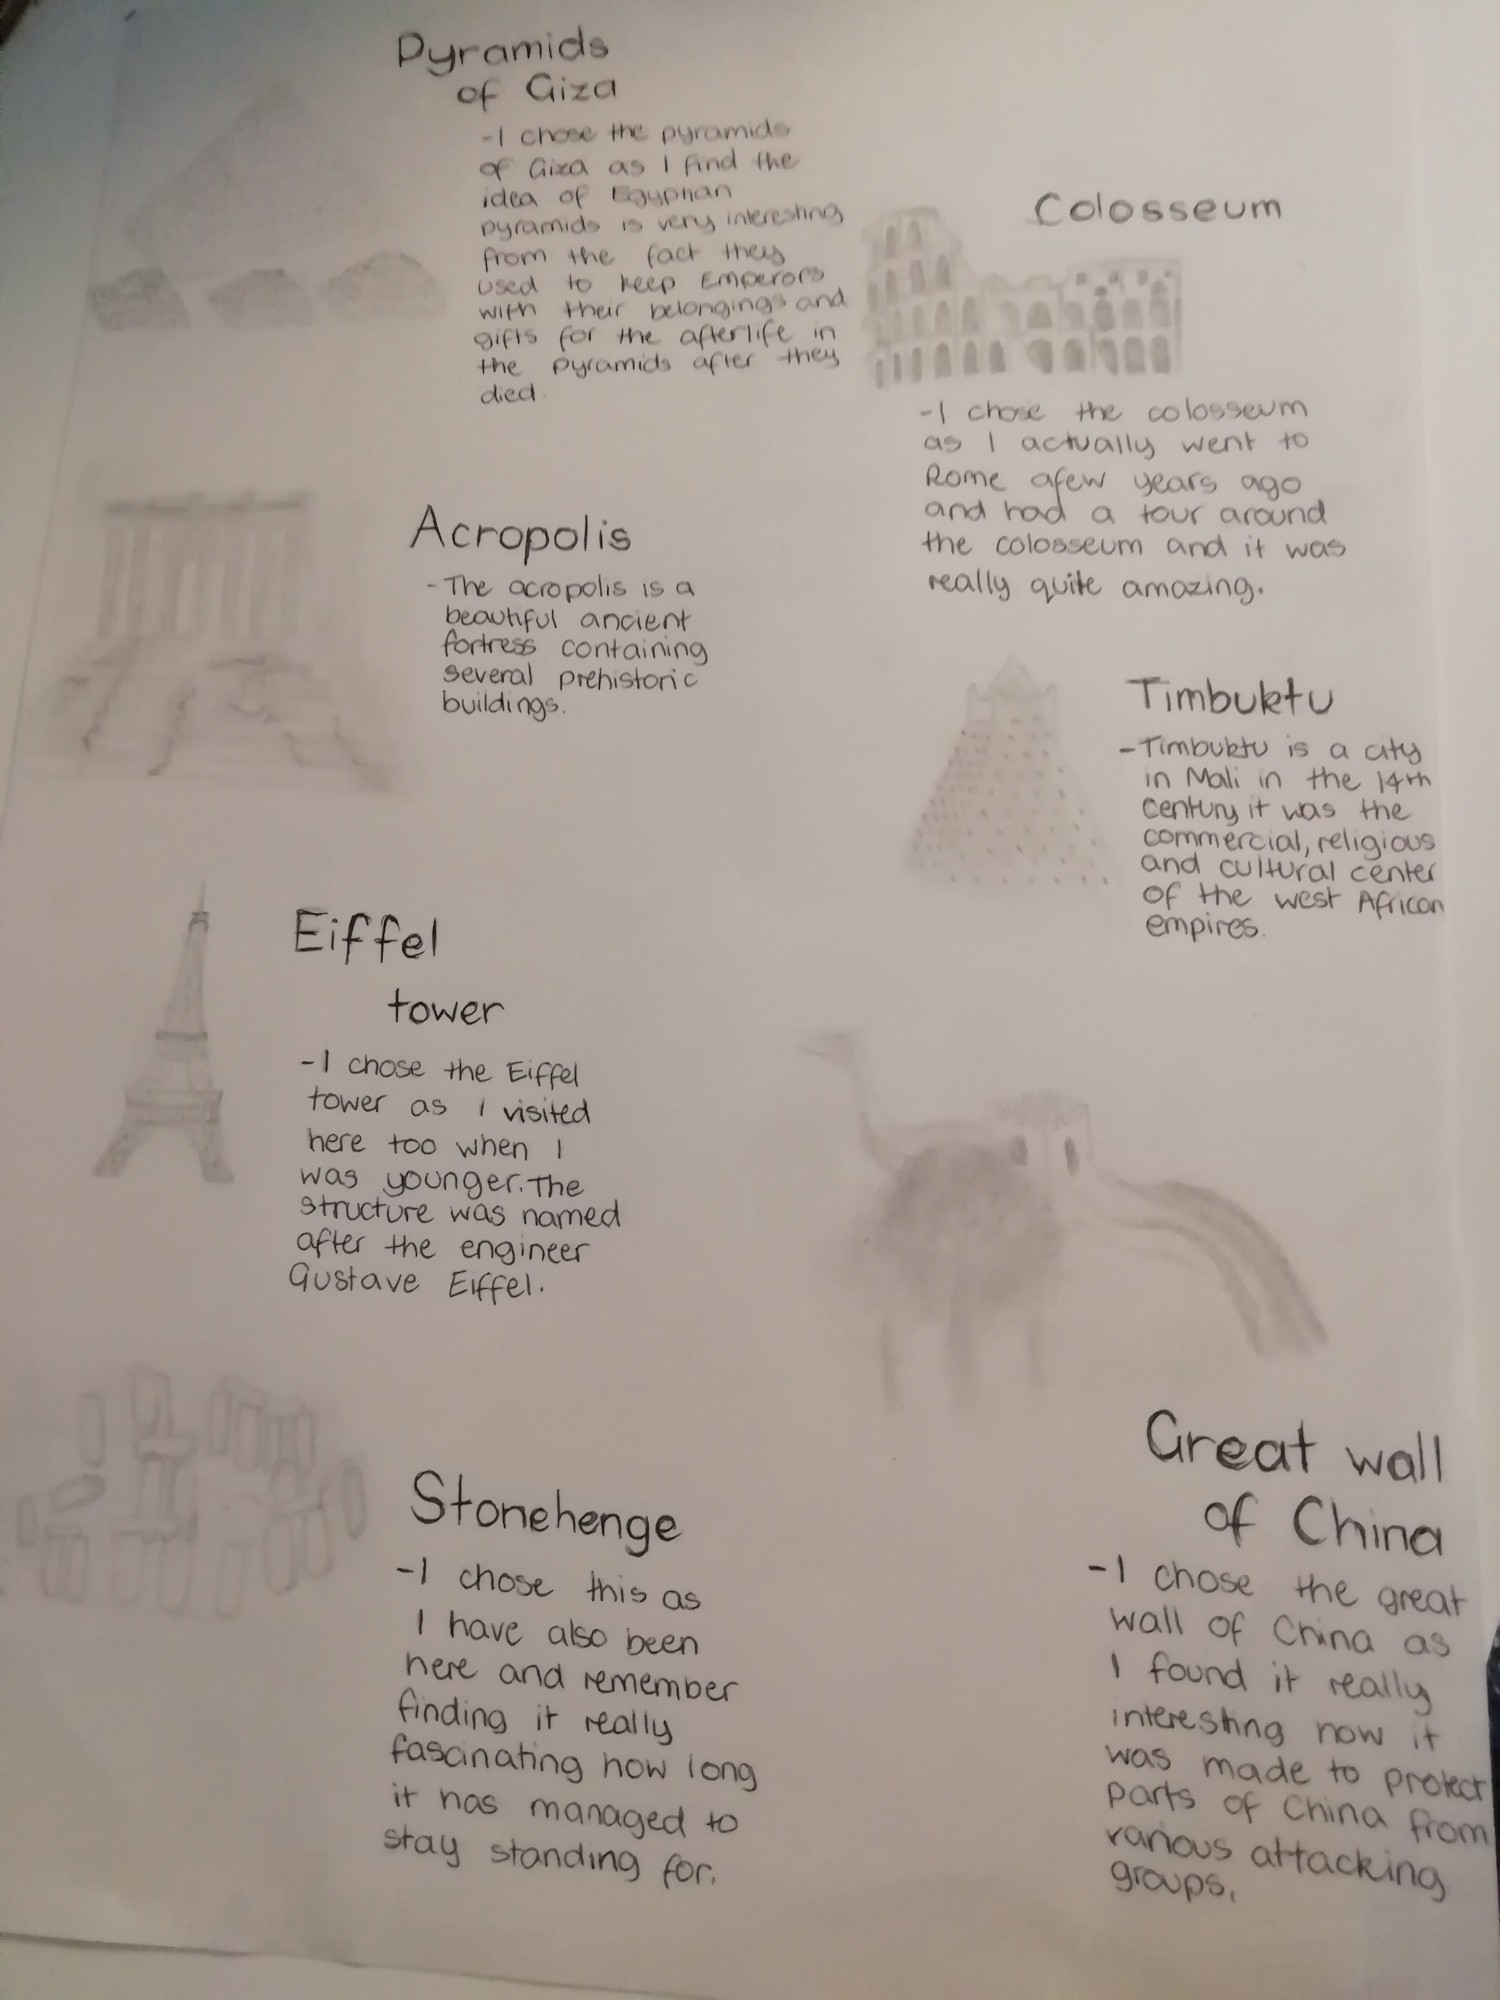 Pyramids
of Giza
-I chose the pyramids
of Giza as I find the
idea of Egyptian
pyramids is very interesting
from the fact they
used to keep Emperors
with their belongings and
gifts for the afterlife in
the pyramids after they
died.
Colosseum
-I chose the colosseum
as I actually went to
Rome afew years ago
and had a tour around
the colosseum and it was
really quite amazing.
Acropolis
-The acropolis is a
beautiful ancient
fortress containing
several prehistoric
buildings.
Timbuktu
-Timbuktu is a city
in Mali in the 14th
century it was the
commercial, religious
and cultural center
of the west African
empires.
Eiffel
tower
-I chose the Eiffel
tower as I visited
here too when I
was younger. The
structure was named
after the engineer
Gustave Eiffel.
Stonehenge
-I chose this as
I have also been
here and remember
finding it really
fascinating how long
it has managed to
stay standing for.
Great wall
of China
-I chose the great
wall of China as
I found it really
interesting how it
was made to protect
parts of China from
various attacking
groups.